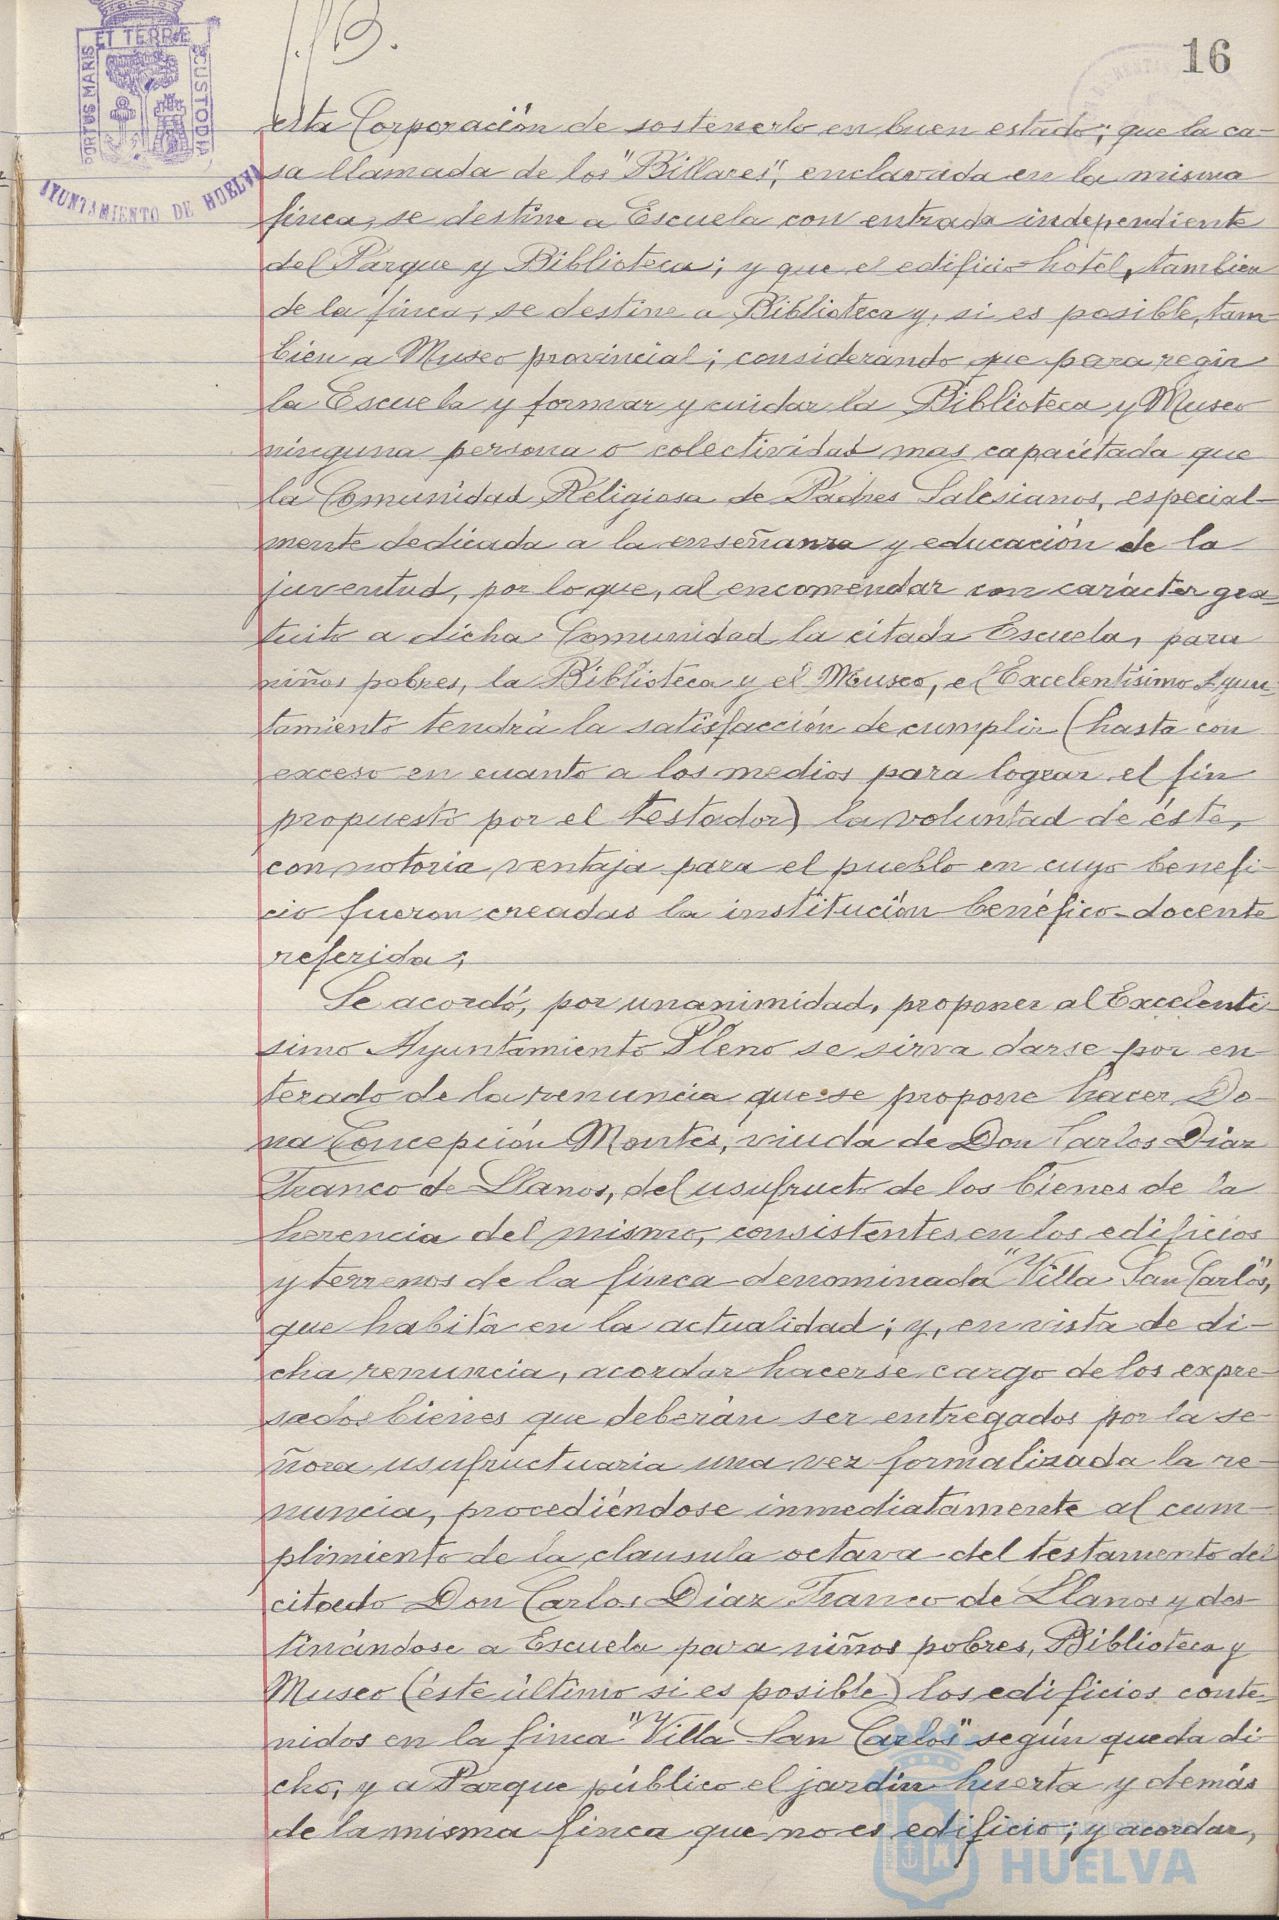 16
PORTUS MARIS ET TERRÆ CUSTODIA
AYUNTAMIENTO DE HUELVA
esta Corporación de sostenerlo en buen estado; que la ca-
sa llamada de los "Billares", enclavada en la misma
finca, se destine a Escuela con entrada independiente
del Parque y Biblioteca; y que el edificio-hotel, tambien
de la finca, se destine a Biblioteca y, si es posible, tam-
bien a Museo provincial; considerando que para regir
la Escuela y formar y cuidar la Biblioteca y Museo
ninguna persona o colectividad mas capacitada que
la Comunidad Religiosa de Padres Salesianos, especial-
mente dedicada a la enseñanza y educación de la
juventud, por lo que, al encomendar con carácter gra-
tuito a dicha Comunidad la citada Escuela, para
niños pobres, la Biblioteca y el Museo, el Excelentísimo Ayun-
tamiento tendrá la satisfacción de cumplir (hasta con
exceso en cuanto a los medios para lograr el fin
propuesto por el testador) la voluntad de éste,
con notoria ventaja para el pueblo en cuyo benefi-
cio fueron creadas la institución benéfico-docente
referida;
Se acordó, por unanimidad, proponer al Excelentí-
simo Ayuntamiento Pleno se sirva darse por en-
terado de la renuncia que se propone hacer Do-
ña Concepción Montes, viuda de Don Carlos Díaz
Franco de Llanos, del usufructo de los bienes de la
herencia del mismo, consistentes en los edificios
y terrenos de la finca denominada "Villa San Carlos",
que habita en la actualidad; y, en vista de di-
cha renuncia, acordar hacerse cargo de los expre-
sados bienes que deberán ser entregados por la se-
ñora usufructuaria una vez formalizada la re-
nuncia, procediéndose inmediatamente al cum-
plimiento de la clausula octava del testamento del
citado Don Carlos Díaz Franco de Llanos y des-
tinándose a Escuela para niños pobres, Biblioteca y
Museo (éste último si es posible) los edificios conte-
nidos en la finca "Villa San Carlos" según queda di-
cho, y a Parque público el jardín huerta y demás
de la misma finca que no es edificio; y acordar,
HUELVA